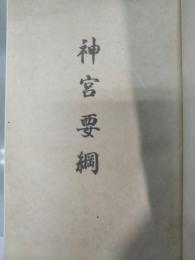 神宮要綱